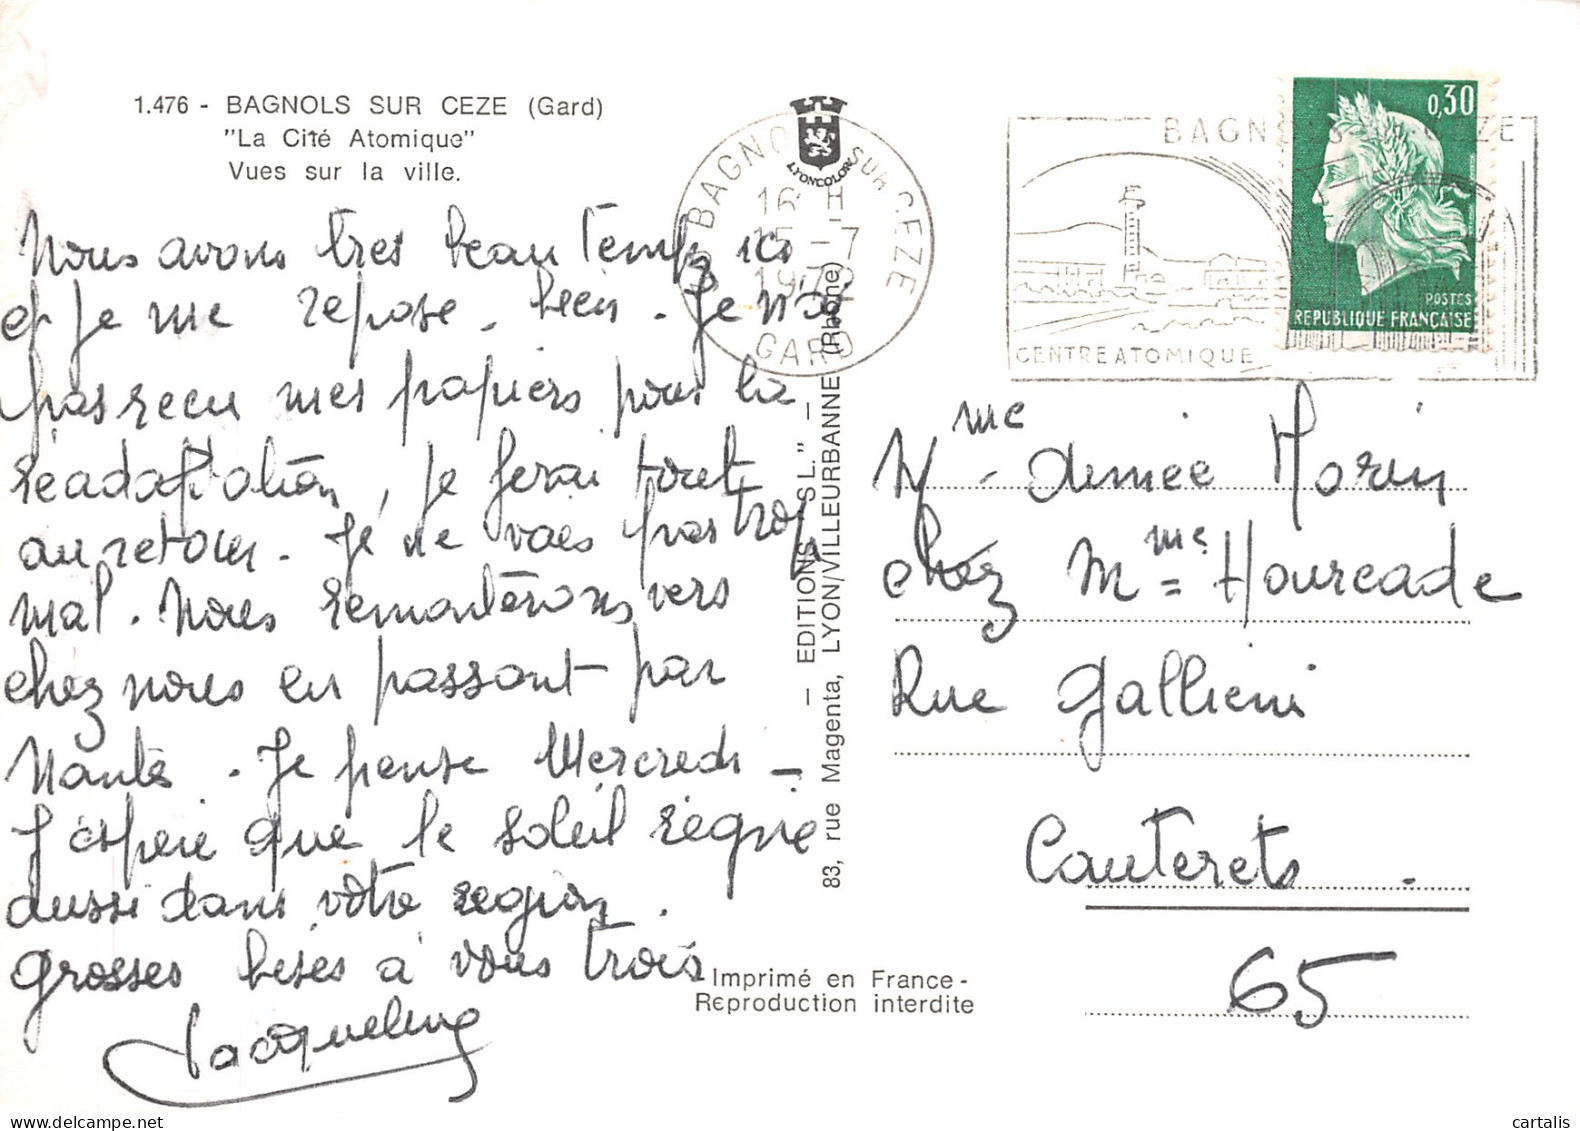 1.476 - BAGNOLS SUR CEZE (Gard)
"La Cité Atomique"
Vues sur la ville.
Nous avons tres beau temps ici
et je me repose bien. Je n'ai
pas recu mes papiers pour la
réadaptation, je ferai tout
au retour. Je ne vais pas trop
mal. Nous remonterons vers
chez nous en passant par
Nantes. Je pense Mercredi -
J'espere que le soleil regne
aussi dans votre region.
grosses bises à vous trois
Jacqueline
BAGNOLS SUR CEZE
16 H
15 -7
GARD
LYONCOLOR
— EDITIONS "S L." —
83, rue Magenta, LYON/VILLEURBANNE (Rhône)
Imprimé en France -
Reproduction interdite
BAGNOLS SUR CEZE
CENTRE ATOMIQUE
0,30
POSTES
REPUBLIQUE FRANÇAISE
Mme Aimée Morin
chez Mme Hourcade
Rue Gallieni
Cauterets.
65
cartalis